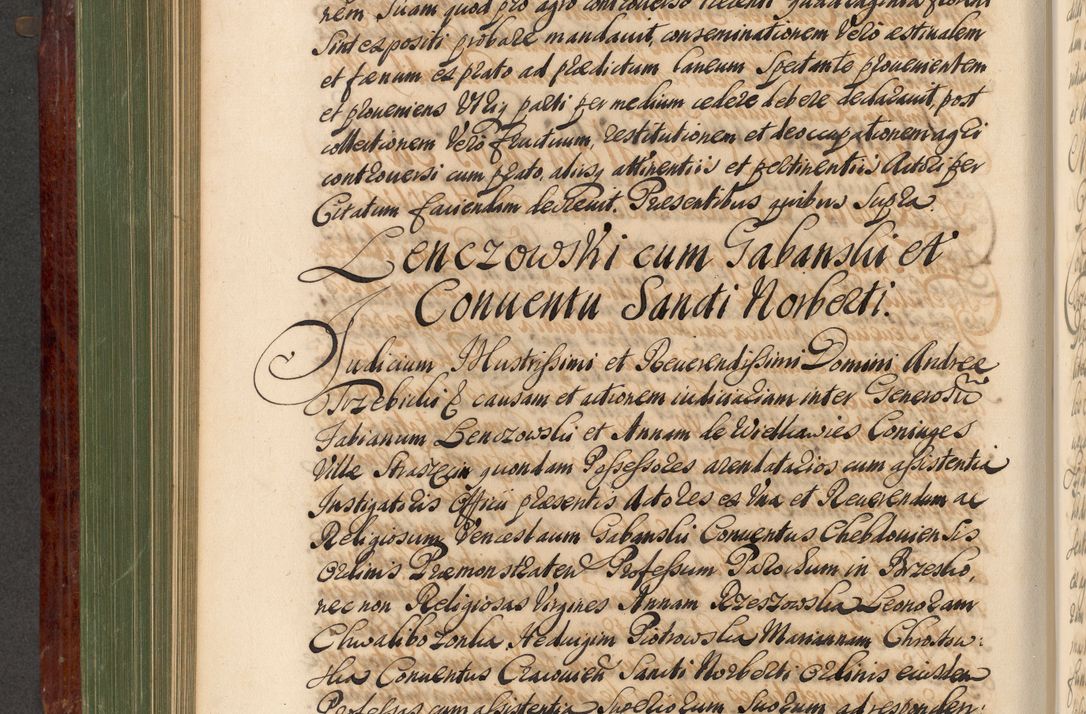 rem suam quod pro agro controverso recenti quadraginta floreni
sint expositi probare mandauit, conseminationem vero æstiualem
et fænum ex prato ad prædictum laneum spectante prouenientem
et proueniens vtriq parti per medium cedere debere declarauit, post
collectionem vero fructuum, restitutionem et deoccupationem agri
controuersi cum prato, alijsq attinentiis et pertinentiis Actori per
Citatum faciendam decreuit. Præsentibus quibus supra.
Lenczowski cum Gabanski et
Conuentu Sancti Norberti.
Judicium Illustrissimi et Reuerendissimi Domini Andreæ
Trzebicki E causam et actionem iudiciariam inter Generosos
Fabianum Lenczowski et Annam de Wielkawies Coniuges
Villæ Straszecin quondam Possessores arendatarios cum assistentia
Instigatoris Officii præsentis Actores ex vna et Reuerendum ac
Religiosum Venceslaum Gabanski Conuentus Chebdouiensis
Ordinis Præmonstraten Professum Parochum in Brzesko,
nec non Religiosas Virgines Annam Rzeszowska Leonoram
Chwalibozonka Hedvigim Piotrowska Mariannam Chrostow:
ska Conuentus Cracouien Sancti Norberti Ordinis eiusdem
Professas cum assistentia Superiorum suorum ad responden: